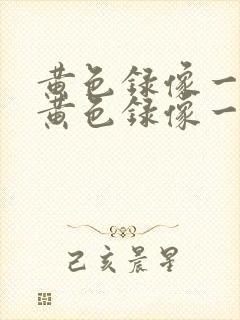 黄色録像一
黄色録像一
己亥晨星